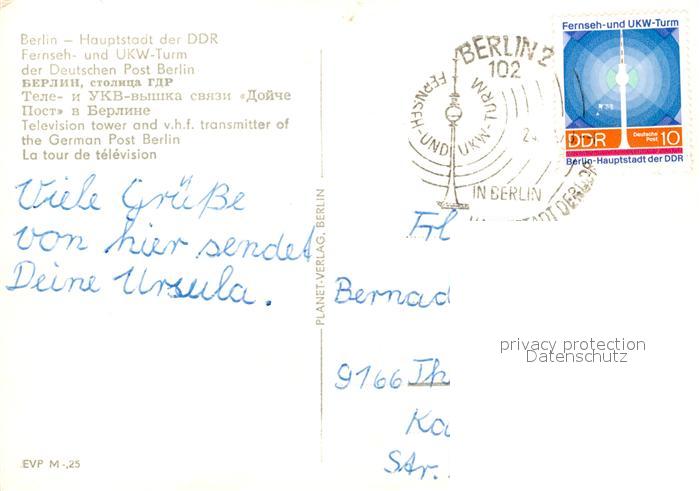 Berlin – Hauptstadt der DDR
Fernseh- und UKW-Turm
der Deutschen Post Berlin
БЕРЛИН, столица ГДР
Теле- и УКВ-вышка связи «Дойче
Пост» в Берлине
Television tower and v.h.f. transmitter of
the German Post Berlin
La tour de télévision
Viele Grüße
von hier sendet
Deine Ursula.
EVP M -,25
PLANET-VERLAG, BERLIN
BERLIN 2
102
FERNSEH-UND UKW-TURM
IN BERLIN
HAUPTSTADT DER DDR
Fernseh-und UKW-Turm
DDR Deutsche Post 10
Berlin-Hauptstadt der DDR
Frl
Bernad
9166 Th
Ka
Str.
privacy protection
Datenschutz